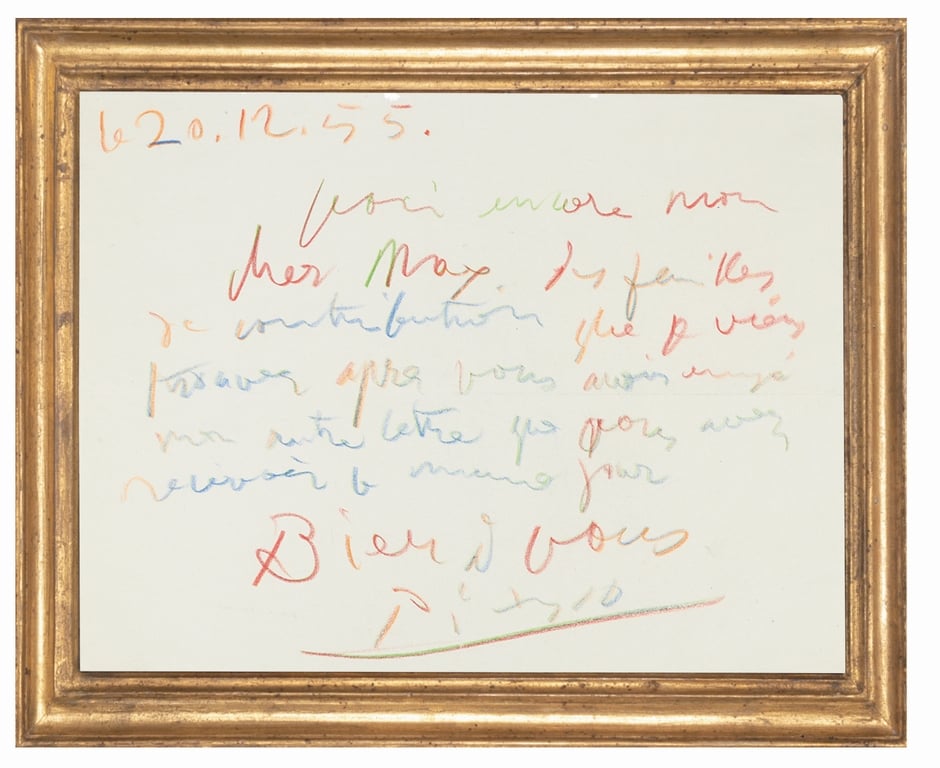 le 20.12.55.
voici encore mon
cher Max des feuilles
de contribution que je viens
trouver apres vous avoir envoyé
mon autre lettre que vous avez
recevoir le meme jour
Bien à vous
Picasso